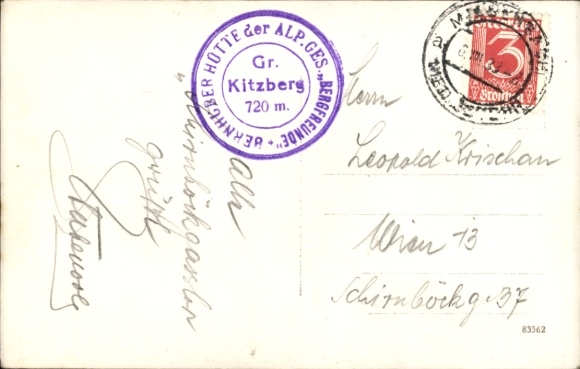 BERNHUBER HÜTTE der ALP. GES. „BERGFREUNDE"
Gr.
Kitzberg
720 m.
3
Herrn
Leopold Krischan
Wien 13
Schirnböckg 37
83562
Alle
Schirnböckgassler
grüßt